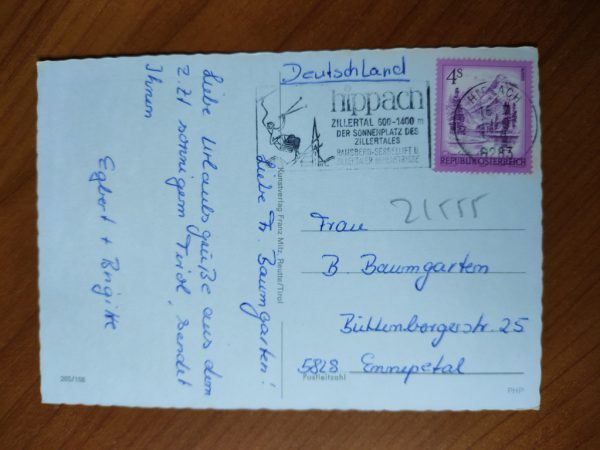 Deutschland
hippach
ZILLERTAL 600-1400 m
DER SONNENPLATZ DES
ZILLERTALES
RAMSBERG-SESSELLIFT U.
ZILLERTALER HÖHENSTRASSE
4S
HIPPACH
6283
REPUBLIK ÖSTERREICH
Liebe Fr. Baumgarten!
Liebe Urlaubsgrüße aus dem
z. Zt sonnigem Tirol, sendet
Ihnen
Egbert + Brigitte
Kunstverlag Franz Milz, Reutte/Tirol
21555
Frau
B. Baumgarten
Büttenbergerstr. 25
5828 Ennepetal
Postleitzahl
265/156
PHP